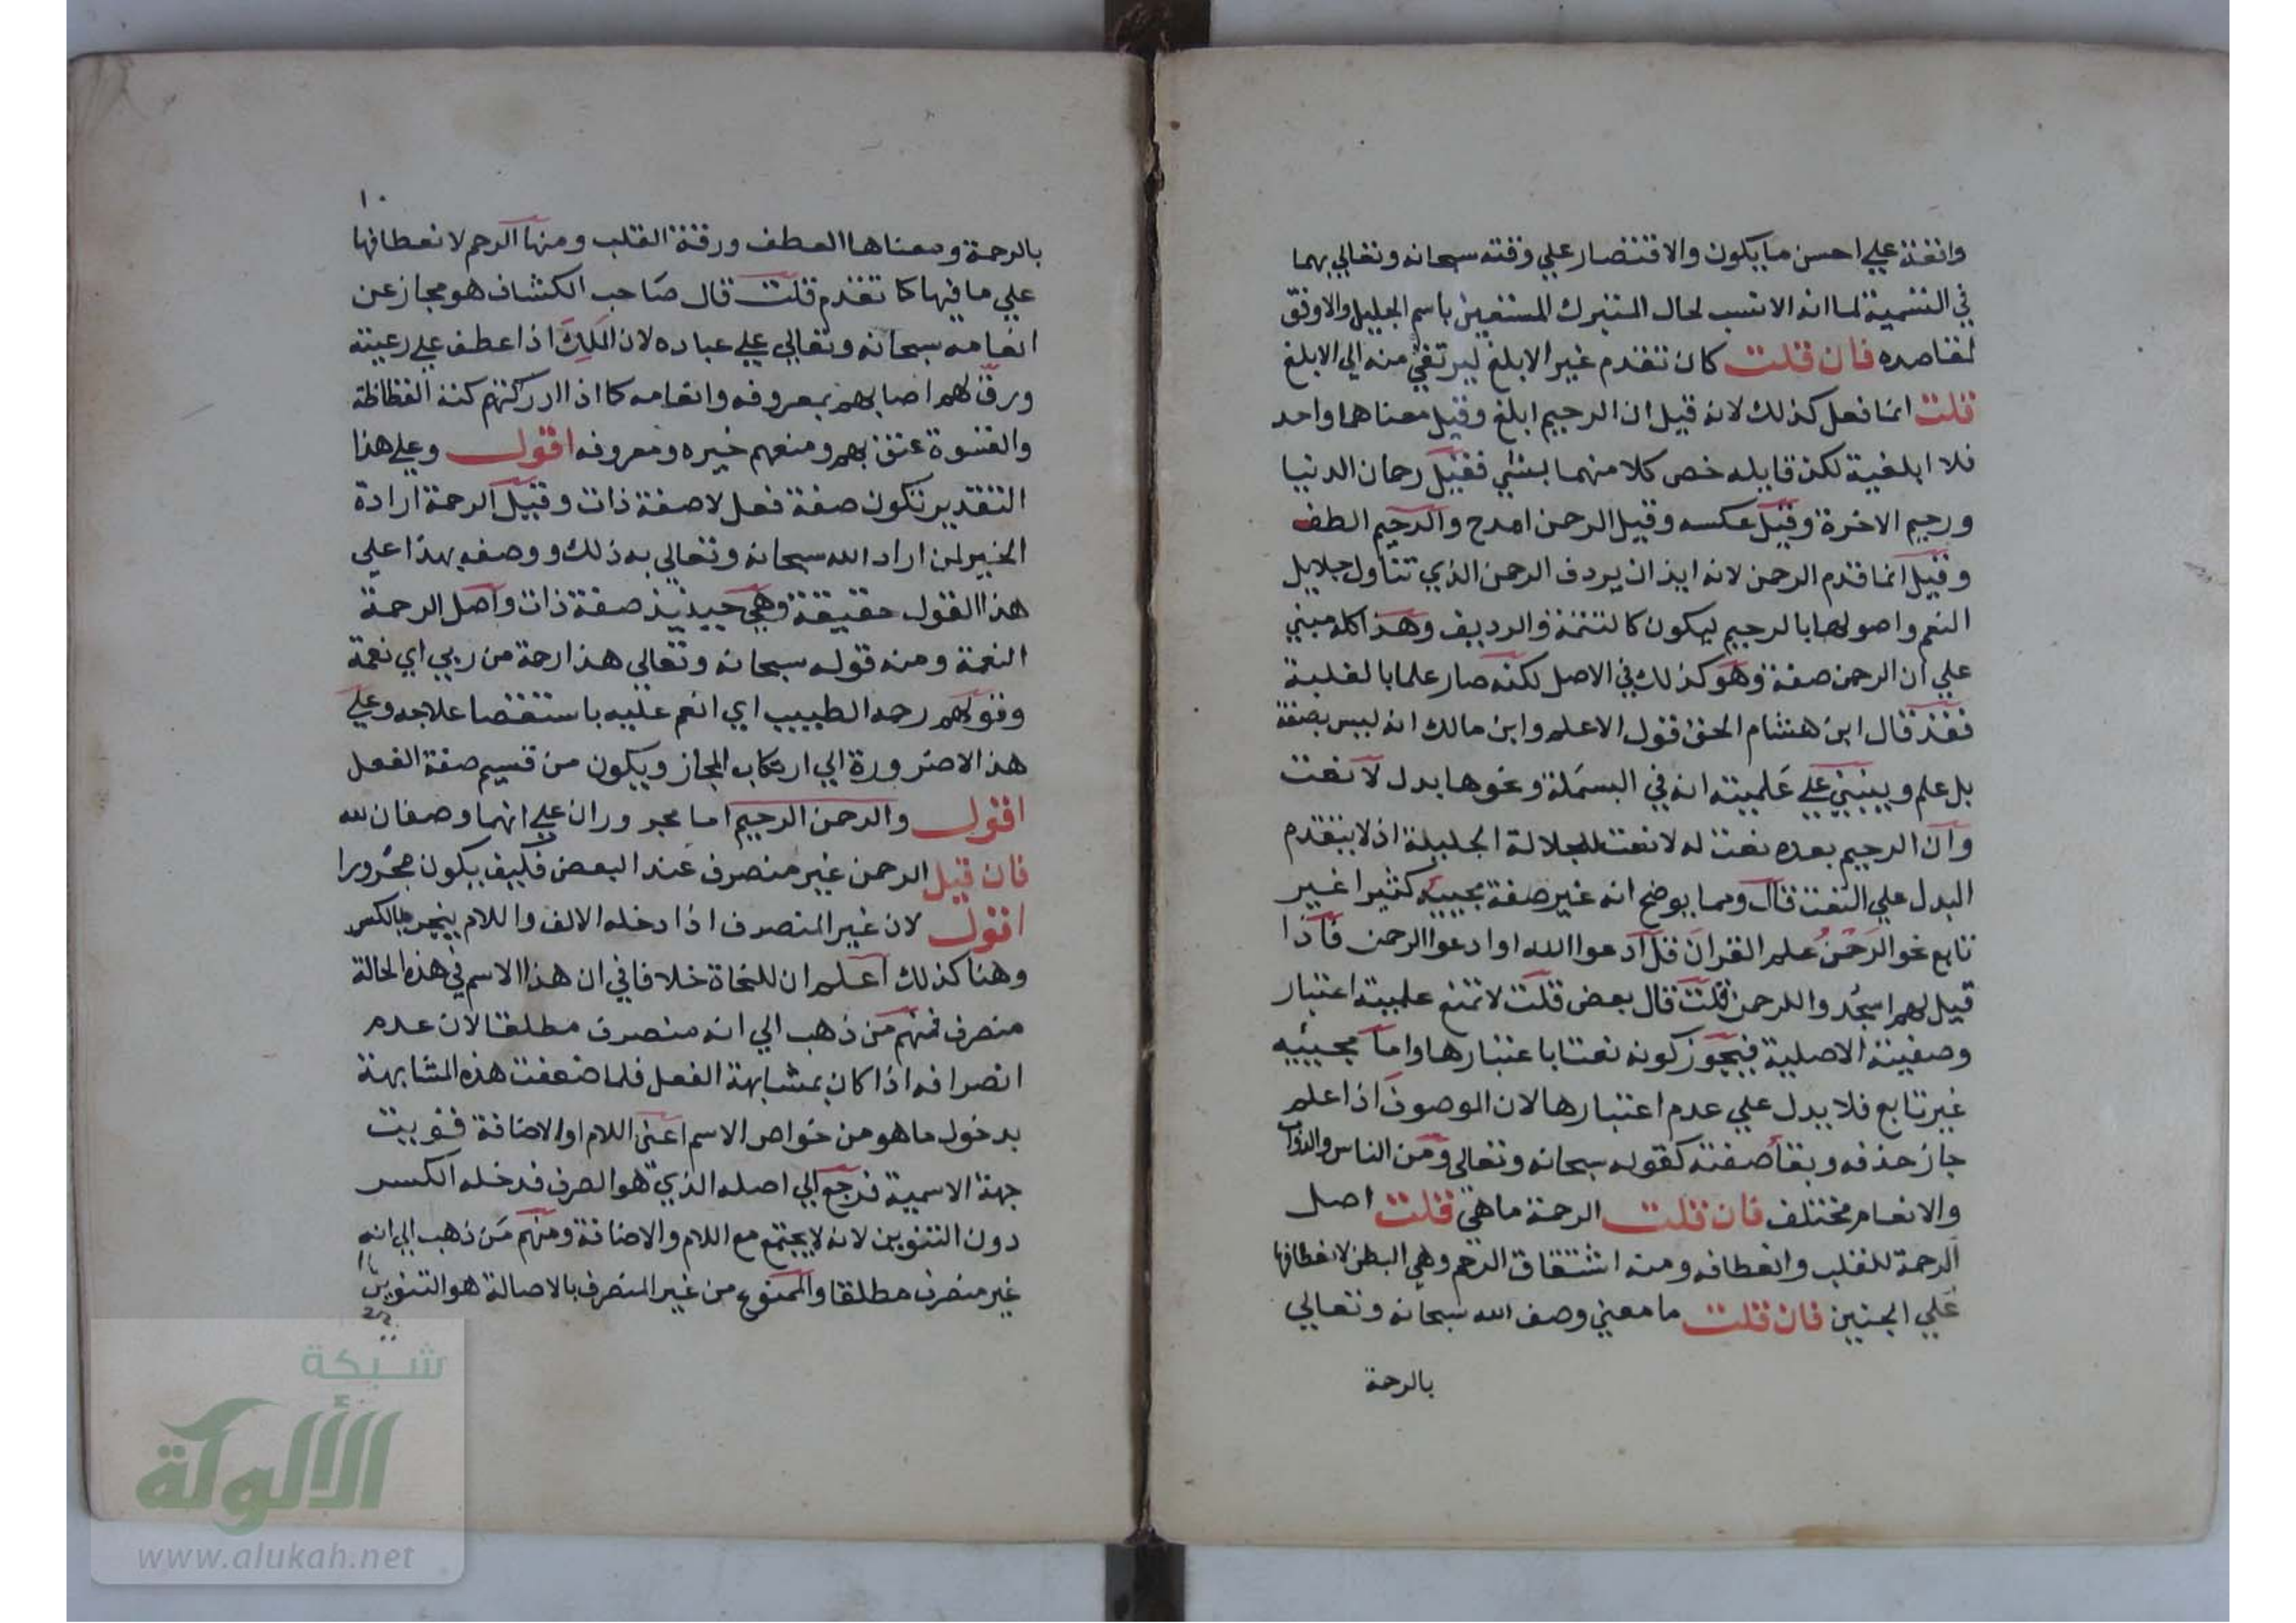 وانغة علي احسن ما يكون والاقتصار علي وقته سبحانه وتعالي بهما
في التسمية لما انه الانسب لحال المتبرك المستعين باسم الجليل والاوفق
لمقاصده فان قلت كان تقدم غير الابلغ ليرتقي منه الي الابلغ
قلت انما فعل كذلك لانه قيل ان الرحيم ابلغ وقيل معناهما واحد
فلا ابلغية لكن قايله خص كلا منهما بشي فقيل رحمان الدنيا
ورحيم الاخرة وقيل عكسه وقيل الرحمن امدح والرحيم الطف
وقيل انما قدم الرحمن لانه ايذ ان يردف الرحمن الذي تناول جلايل
النعم واصولها بالرحيم ليكون كالتتمة والرديف وهذا كله مبني
علي ان الرحمن صفة وهو كذلك في الاصل لكنه صار علما بالغلبة
فقد قال ابن هشام الحق قول الاعلم وابن مالك انه ليس بصفة
بل علم ويبنبني علي عَلَميته انه في البسملة ونحوها بدل لا نعت
وان الرحيم بعده نعت له لا نعت للجلالة الجليلة اذ لا يتقدم
البدل علي النعت قال ومما يوضح انه غير صفة مجييه كثيرا غير
تابع نحو الرحمنُ علم القرانَ قل ادعوا الله او ادعوا الرحمن فاذا
قيل لهم اسجُدوا للرحمن قلت قال بعض قلت لا تمنع علميته اعتبار
وصفيته الاصلية فيجوز كونه نعتا باعتبارها واما مجيئيه
غير تابع فلا يدل علي عدم اعتبارها لان الموصوف اذا علم
جاز حذفه وبقا صفته كقوله سبحانه وتعالي ومن الناس والدواب
والانعام مختلف فان قلت الرحمة ما هي قلت اصل
الرحمة للقلب وانعطافه ومنه اشتقاق الرحم وهي البطن لانعطافها
علي الجنين فان قلت ما معني وصف الله سبحانه وتعالي
بالرحمة
١٠
بالرحمة ومعناها العطف ورقة القلب ومنها الرحم لانعطافها
علي ما فيها كما تقدم قلت قال صاحب الكشاف هو مجاز عن
انعامه سبحانه وتعالي علي عباده لان المَلِكَ اذا عطف علي رعيته
ورقّ لهم اصابهم بمعروفه وانعامه كما اذا ادركتهم كنة الفظاظة
والقسوة عنق بهم ومنعهم خيره ومعروفه اقول وعلي هذا
التقدير تكون صفة فعل لا صفة ذات وقيل الرحمة ارادة
الخير لمن اراد الله سبحانه وتعالي به ذلك ووصفه بهذا علي
هذا القول حقيقة وهي حينيذ صفة ذات واصل الرحمة
النعمة ومنه قوله سبحانه وتعالي هذا رحمة من ربي اي نعمة
وقولهم رحمه الطبيب اي انعم عليه باستقصا علاجه وعلي
هذا لا ضرورة الي ارتكاب المجاز ويكون من قسيم صفة الفعل
اقول والرحمن الرحيم اما مجروران علي انهما وصفان لله
فان قيل الرحمن غير منصرف عند البعض فكيف يكون مجرورا
اقول لان غير المنصرف اذا دخله الالف واللام ينجر بالكسر
وهنا كذلك اعلم ان للنحاة خلافا في ان هذا الاسم في هذه الحالة
منصرف فمنهم من ذهب الي انه منصرف مطلقا لان عدم
انصرافه اذا كان بمشابهة الفعل فلما ضعفت هذه المشابهة
بدخول ما هو من خواص الاسم اعني اللام او الاضافة فقويت
جهة الاسمية فرجع الي اصله الذي هو الصرف فدخله الكسر
دون التنوين لانه لا يجتمع مع اللام والاضافة ومنهم من ذهب الي انه
غير منصرف مطلقا والممنوع من غير المنصرف بالاصالة هو التنوين
شبكة
الألوكة
www.alukah.net